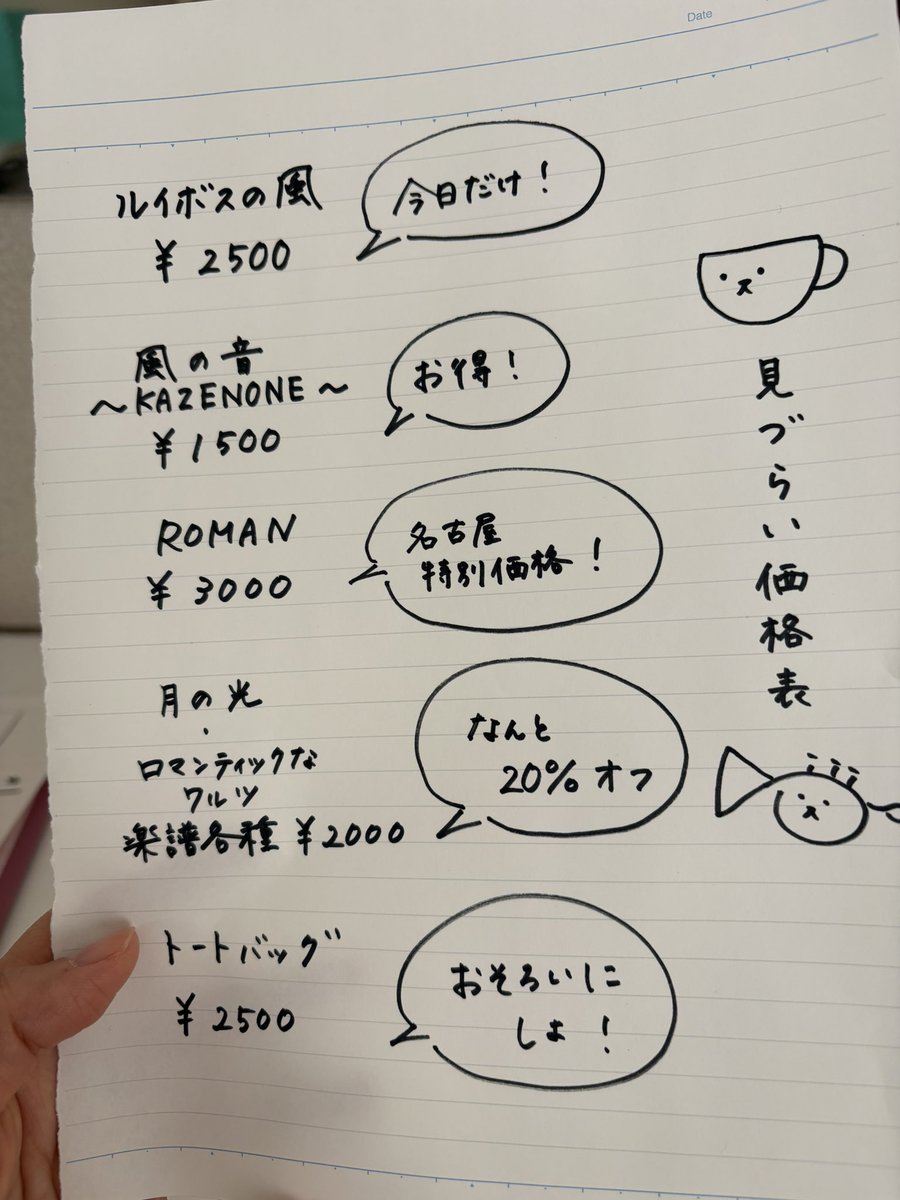 Date
ルイボスの風
¥ 2500
今日だけ!
風の音
〜KAZENONE〜
¥1500
お得!
ROMAN
¥ 3000
名古屋
特別価格!
月の光
・
ロマンティックな
ワルツ
楽譜各種 ¥2000
なんと
20% オフ
トートバッグ
¥ 2500
おそろいに
しょ!
見づらい価格表